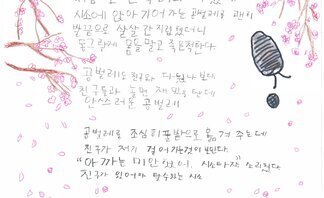 시소에 앉아 기어가는 공벌레를 괜히
발끝으로 살살 간지럽혔더니
동그랗게 몸을 말고 죽은척한다
공벌레도 친구와 다퉜나보다
친구들과 놀면 재밌을텐데
안쓰러운 공벌레
공벌레를 조심히 풀밭으로 옮겨 주는데
친구가 저기 걸어가는것이 보인다
"아까는 미안했어. 시소타자" 소리친다
친구가 있어야 탈수있는 시소